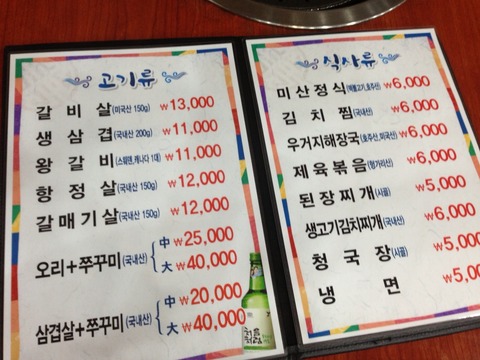 고기류
갈비살(미국산 150g) ₩13,000
생삼겹(국내산 200g) ₩11,000
왕갈비(스페인,캐나다 1대) ₩11,000
항정살(국내산 150g) ₩12,000
갈매기살(국내산 150g) ₩12,000
오리+쭈꾸미(국내산) 中 ₩25,000
大 ₩40,000
삼겹살+쭈꾸미(국내산) 中 ₩20,000
大 ₩40,000
처음처럼
식사류
미산정식 ₩6,000
김치찜(국내산) ₩6,000
우거지해장국(호주산,미국산) ₩6,000
제육볶음(헝가리산) ₩6,000
된장찌개(사골) ₩5,000
생고기김치찌개(국내산) ₩6,000
청국장(사골) ₩5,00
냉면 ₩5,0